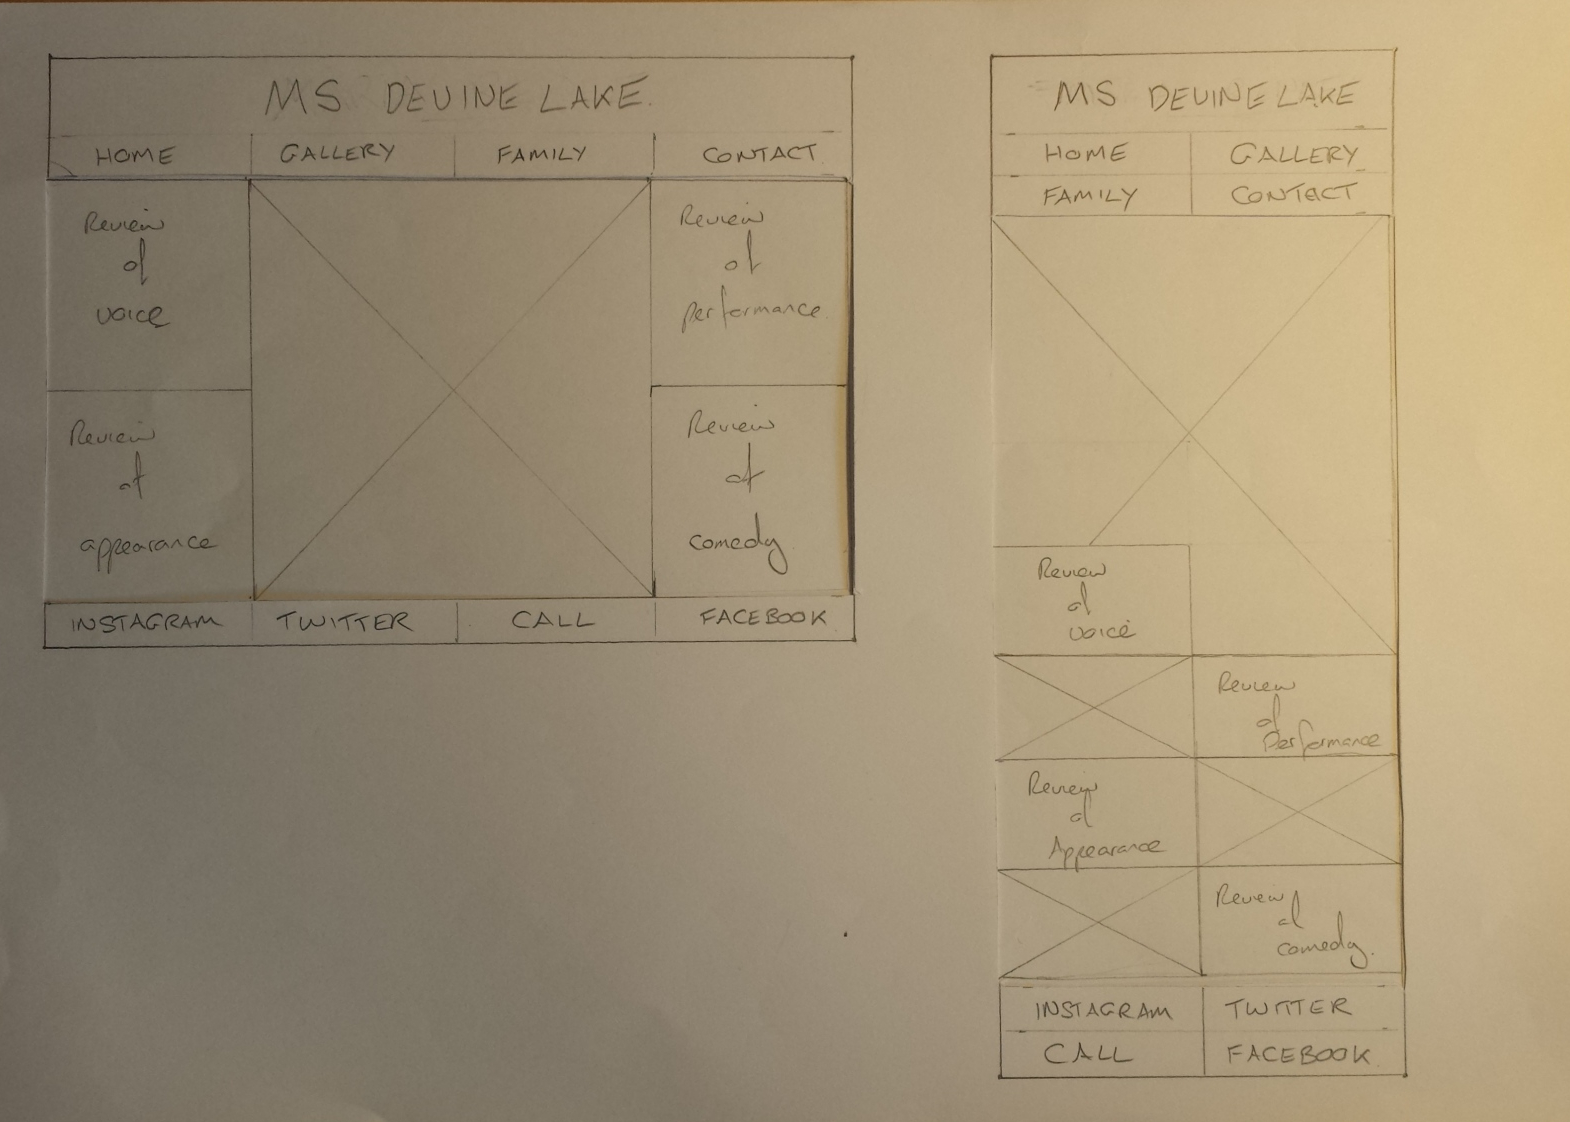 MS DEVINE LAKE.
HOME GALLERY FAMILY CONTACT
Review
of
voice
Review
of
performance.
Review
of
appearance
Review
of
comedy
INSTAGRAM TWITTER CALL FACEBOOK
MS DEVINE LAKE
HOME GALLERY
FAMILY CONTACT
Review
of
voice
Review
of
Performance
Review
of
Appearance
Review
of
comedy.
INSTAGRAM TWITTER
CALL FACEBOOK